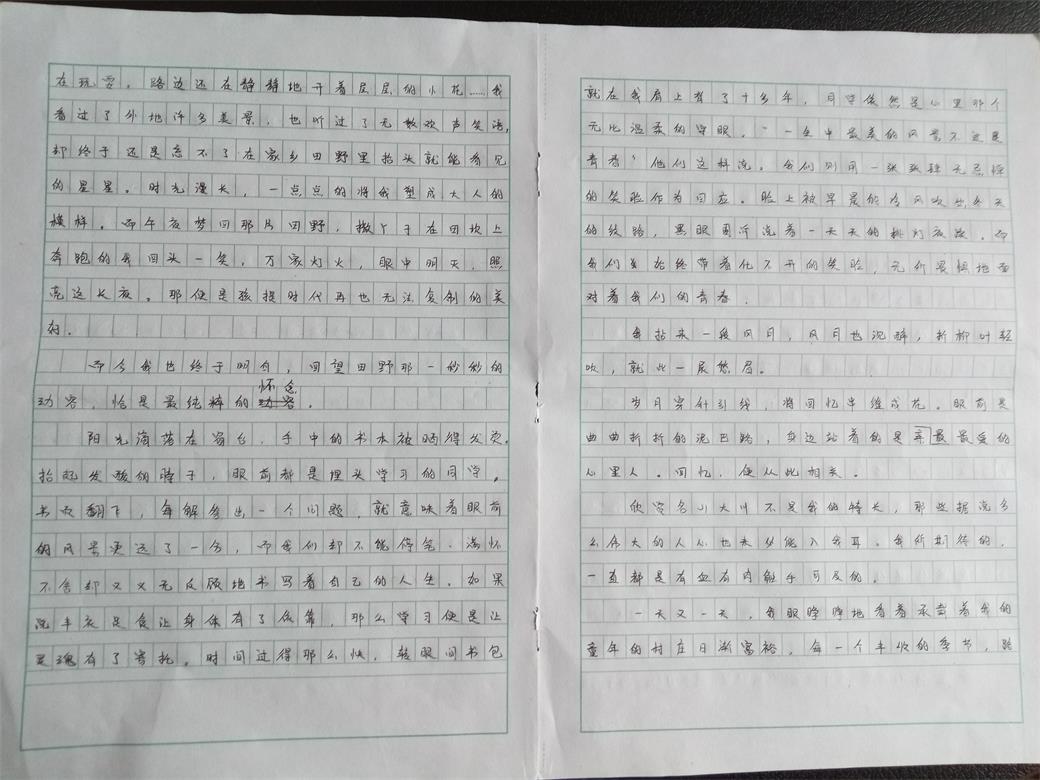 在玩耍。路边还在静静地开着层层的小花……我
看过了外地许多美景，也听过了无数欢声笑语，
却终于还是忘不了在家乡田野里抬头就能看见
的星星。时光漫长，一点点的将我塑成大人的
模样。而午夜梦回那片田野，撒丫子在田坎上
奔跑的我回头一笑，万家灯火，眼中明灭，照
亮这长夜。那便是孩提时代再也无法复制的美
好。
而今我也终于明白，回望田野那一秒秒的
动容，恰是最纯粹的怀念。
阳光滴落在窗台，手中的书本被晒得发烫。
抬起发酸的脖子，眼前都是埋头学习的同学。
书页翻下，每解答出一个问题，就意味着眼前
的风景更远了一分，而我们却不能停笔，满怀
不舍却又义无反顾地书写着自己的人生。如果
说丰衣足食让身体有了依靠，那么学习便是让
灵魂有了寄托。时间过得那么快，转眼间书包
就在我肩上背了十多年，同学依然是心里那个
无比温柔的字眼。“一生中最美的风景不过是
青春”他们这样说。我们则用一张张肆无忌惮
的笑脸作为回应。脸上被早晨的冷风吹出冬天
的纹路，黑眼圈诉说着一天天的挑灯夜战。而
我们总始终带着化不开的笑脸，无所畏惧地面
对着我们的青春。
我拈来一段风月，风月也沉醉，折柳叶轻
吹，就此一展愁眉。
岁月穿针引线，将回忆串缝成花。眼前是
曲曲折折的泥巴路，身边站着的是最最爱的
心里人。回忆，便从此相关。
欣赏名川大川不是我的特长，那些据说多
么伟大的人心也未必能入我耳。我所期待的，
一直都是有血有肉触手可及的。
一天又一天，我眼睁睁地看着承载着我的
童年的村庄日渐富裕，每一个丰收的季节，路